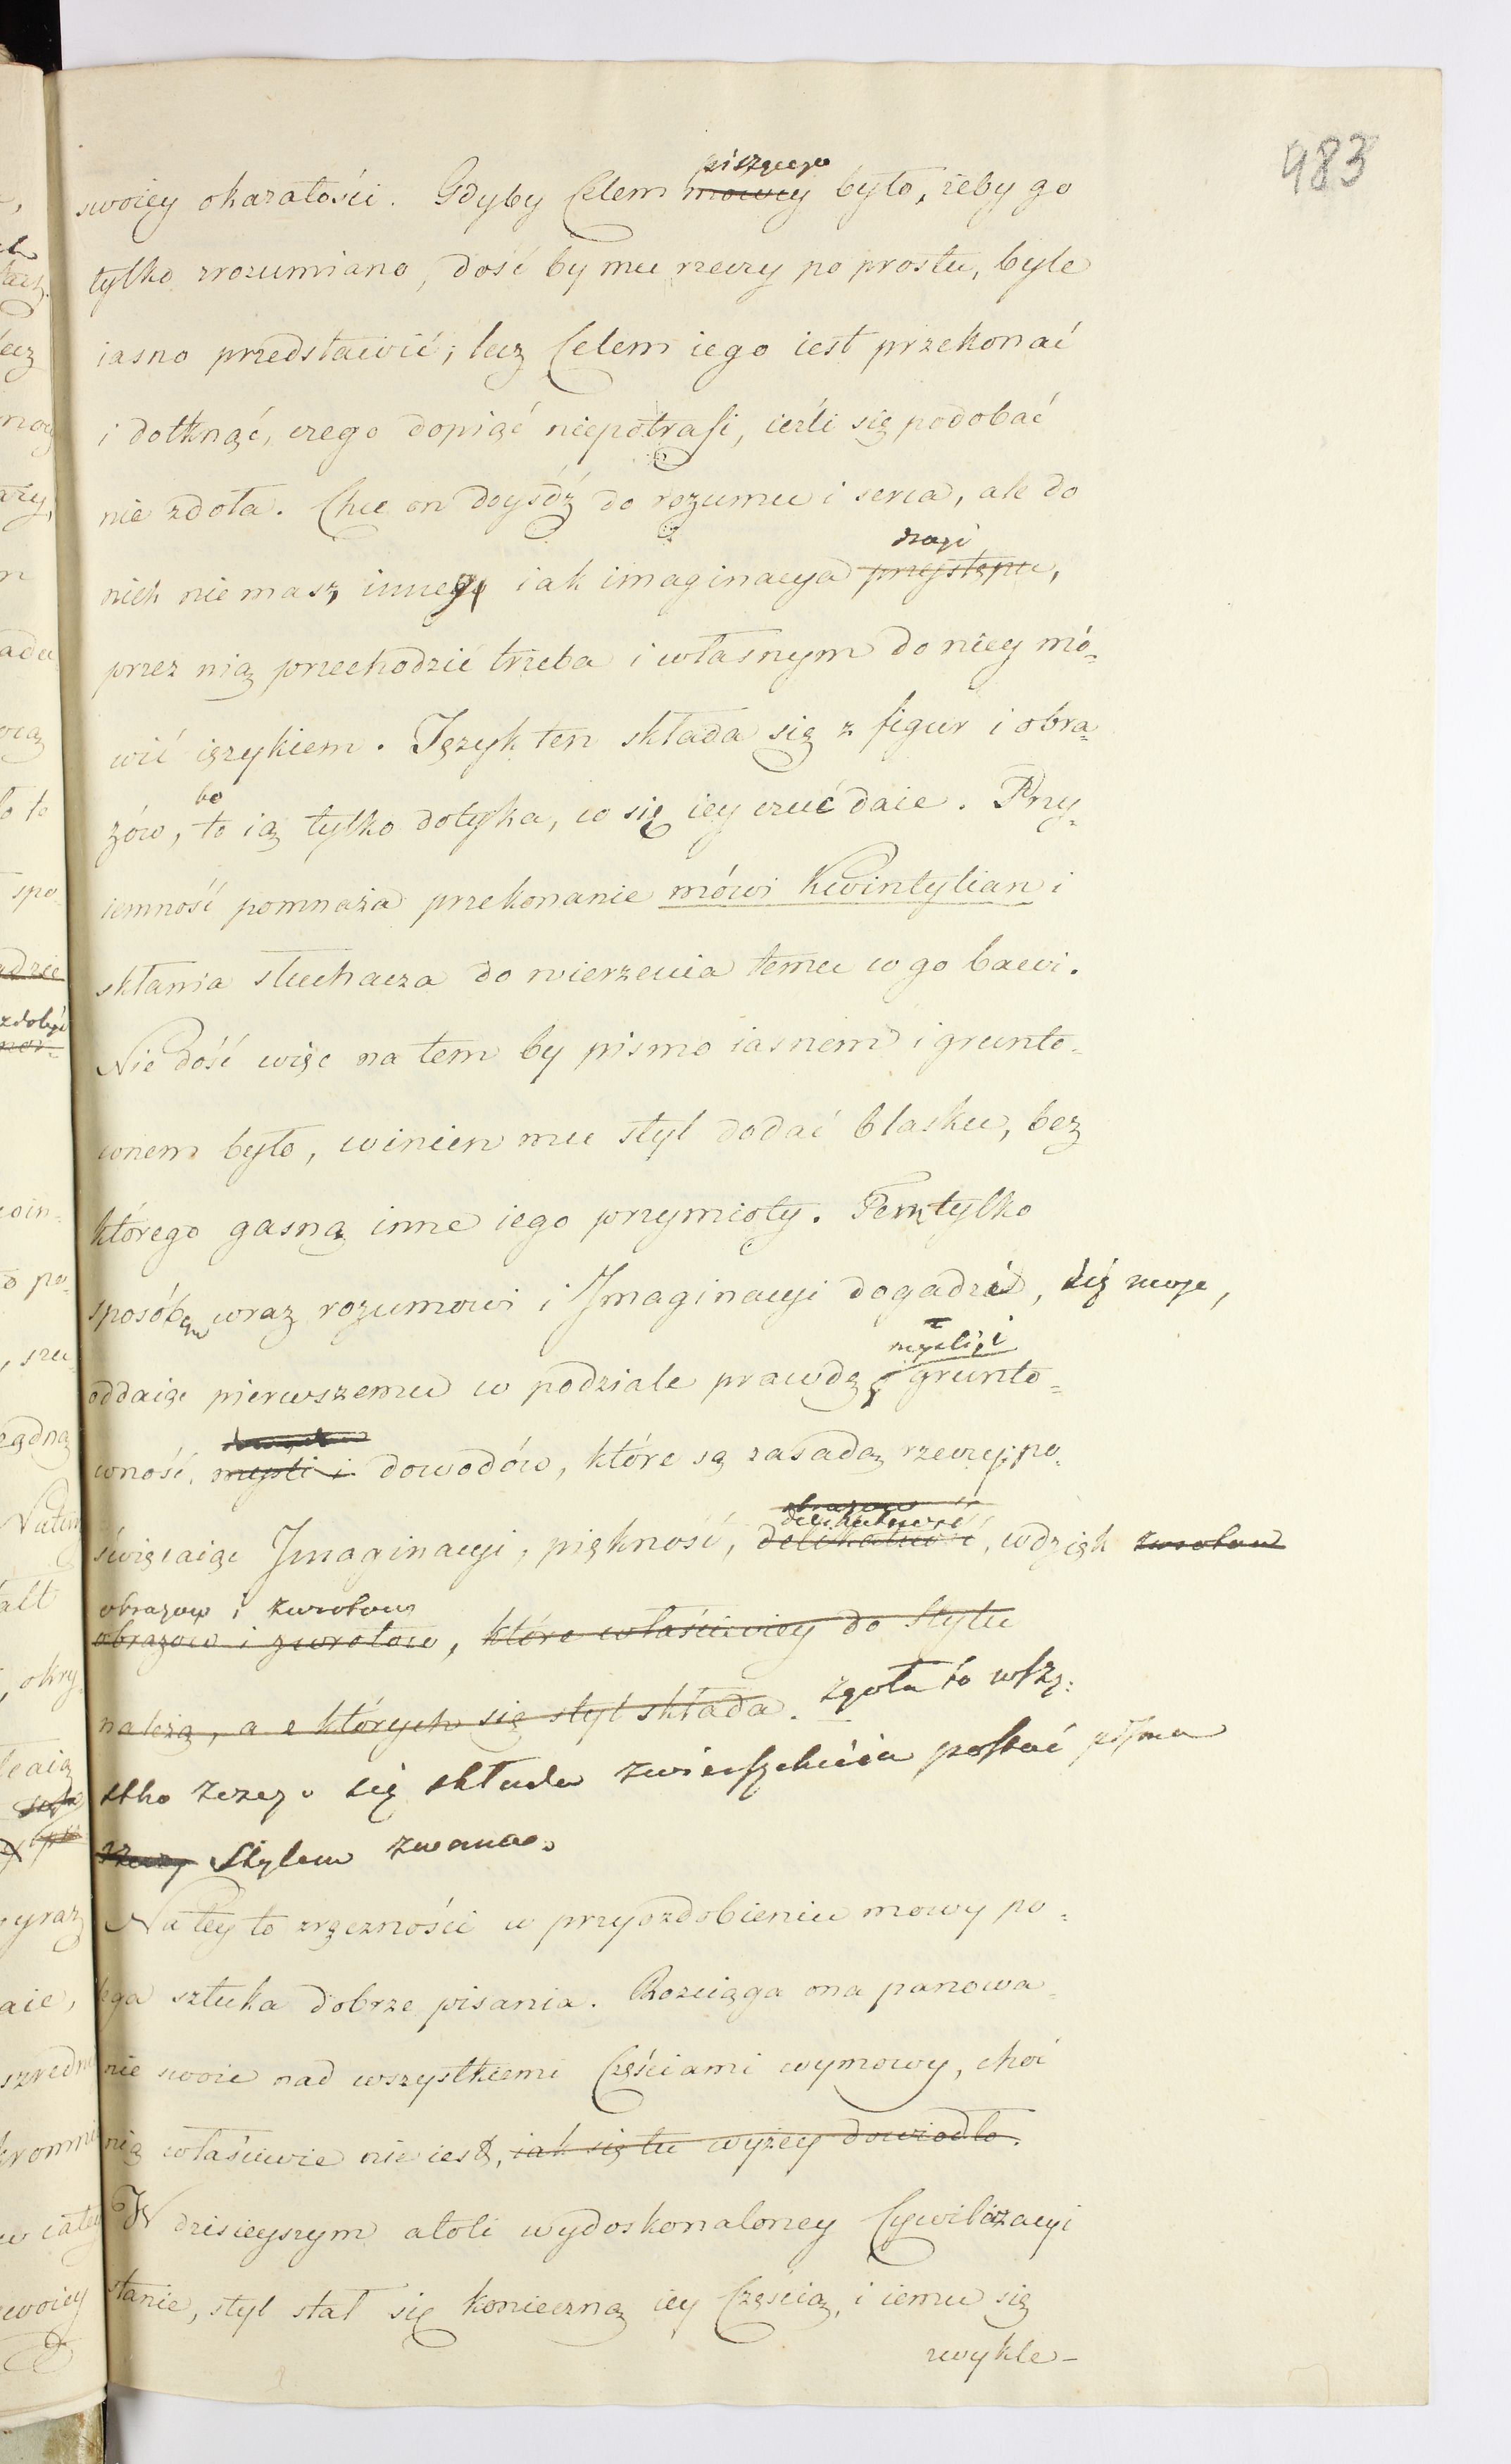 983
piszącego
swoiey okazałości. Gdyby Celem mowcy było, żeby go
tylko zrozumiano, dość by mu rzeczy po prostu, byle
iasno przedstawić; lecz Celem iego iest przekonać
i dotknąć, czego dopiąć niepotrafi, ieźli się podobać
nie zdoła. Chce on doyśdź do rozumu i serca, ale do
drogi
nich nie masz inney iak imaginacya przystępu,
przez nią przechodzić trzeba i własnym do niey mó-
wić ięzykiem. Język ten składa się z figur i obra-
bo
zów, to ią tylko dotyka, co się iey czuć daie. Przy-
iemność pomnaża przekonanie mówi Kwintylian i
skłania słuchacza do wierzenia temu co go bawi.
Nie dość więc na tem by pismo iasnem i grunto-
wnem było, winien mu styl dodać blasku, bez
którego gasną inne iego przymioty. Tem tylko
sposobem wraz rozumowi i Imaginacyi dogadza się może,
myśli i
oddaiąc pierwszemu w podziale prawdę, grunto-
wność, myśli i dowodów, które są zasadą rzeczy; po-
obrazow
delikatność
święcaiąc Imaginacyi, piękność, delikatność, wdzięk zwrotow
obrazow i zwrotow
obrazow i zwrotow, które właściwiey do Stylu
należą, a z których się styl składa. zgoła to wszy-
stko z czego się składa zwierzchnia postać pisma
rzeczy Stylem zwana.
Na tey to zręczności w przyozdobieniu mowy po-
lega sztuka dobrze pisania. Rozciąga ona panowa-
nie swoie nad wszystkiemi Częściami wymowy, choć
nią właściwie nie iest, iak się tu wyżey dowiodło.
W dzisieyszym atoli wydoskonaloney Cywilizacyi
stanie, styl stał się konieczną iey Częścią, i iemu się
zwykle-